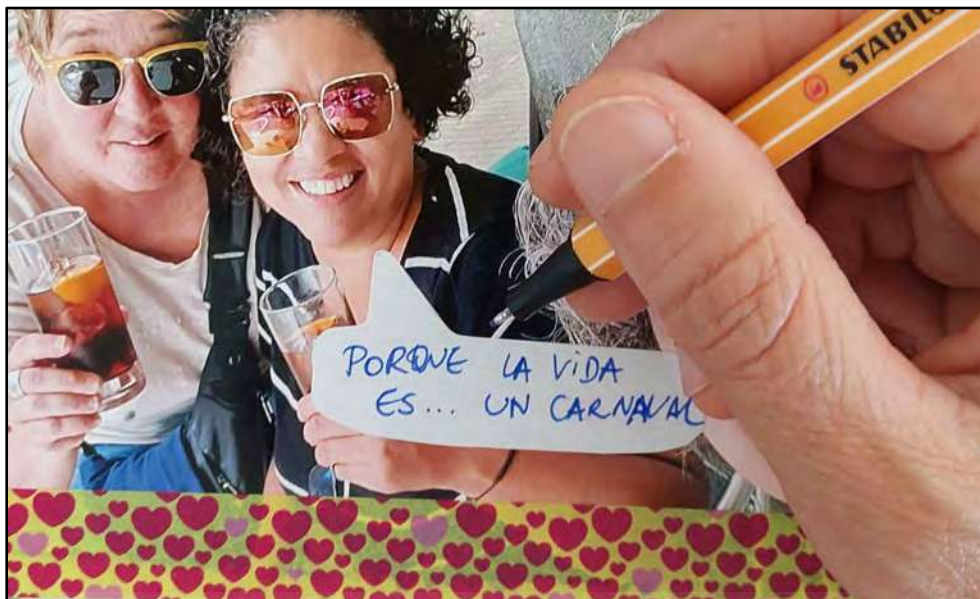 STABILO
PORQUE LA ViDA
ES... UN CARNAVAL